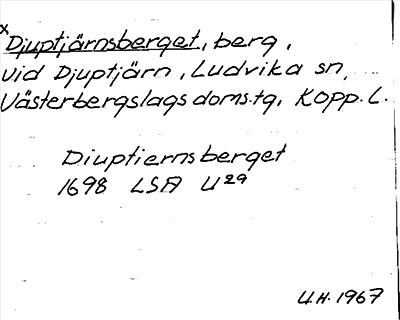 x Djuptjärnsberget, berg,
vid Djuptjärn, Ludvika sn,
Västerbergslags doms.tg, Kopp. L.
Diuptiernsberget
1698 LSA U29
U.H. 1967